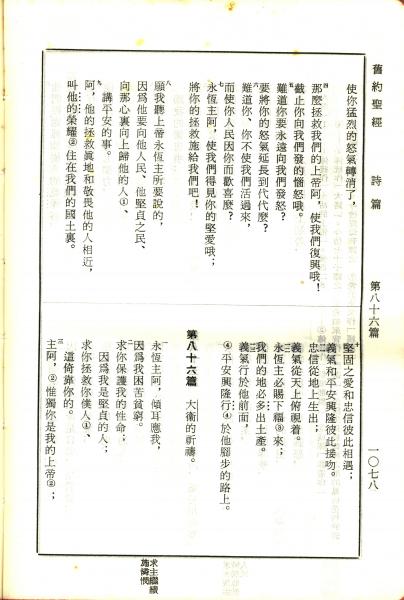 舊約聖經　詩篇　第八十六篇　一〇七八
使你猛烈的怒氣轉消了，
四 那麼拯救我們的上帝阿，使我們復興哦！
截止你向我們發的惱怒哦。
五 難道你要永遠向我們發怒？
要將你的怒氣延長到代代麼？
六 難道你、你不使我們活過來，
而使你人民因你而歡喜麼？
七 永恆主阿，使我們得見你的堅愛哦；
將你的拯救施給我們吧！
八 願我聽上帝永恆主所要說的，
因為他要向他人民、他堅貞之民、
向那心裏向上歸他的人①、
講平安的事。
九 阿，他的拯救眞地和敬畏他的人相近，
叫他的榮耀②住在我們的國土裏。
十 堅固之愛和忠信彼此相遇；
義氣和平安興隆彼此接吻。
忠信從地上生出；
義氣從天上俯視着。
永恆主必賜下福③來；
我們的地必多出土產。
義氣行於他前面，
④平安興隆行④於他腳步的路上。
第八十六篇　大衛的祈禱。
一 永恆主阿，傾耳應我，
因為我困苦貧窮。
二 求你保護我的性命；
因為我是堅貞的人；
求你拯救你僕人①、
這倚靠你的。
三 主阿，②惟獨你是我的上帝②；
求主繼續
施憐憫